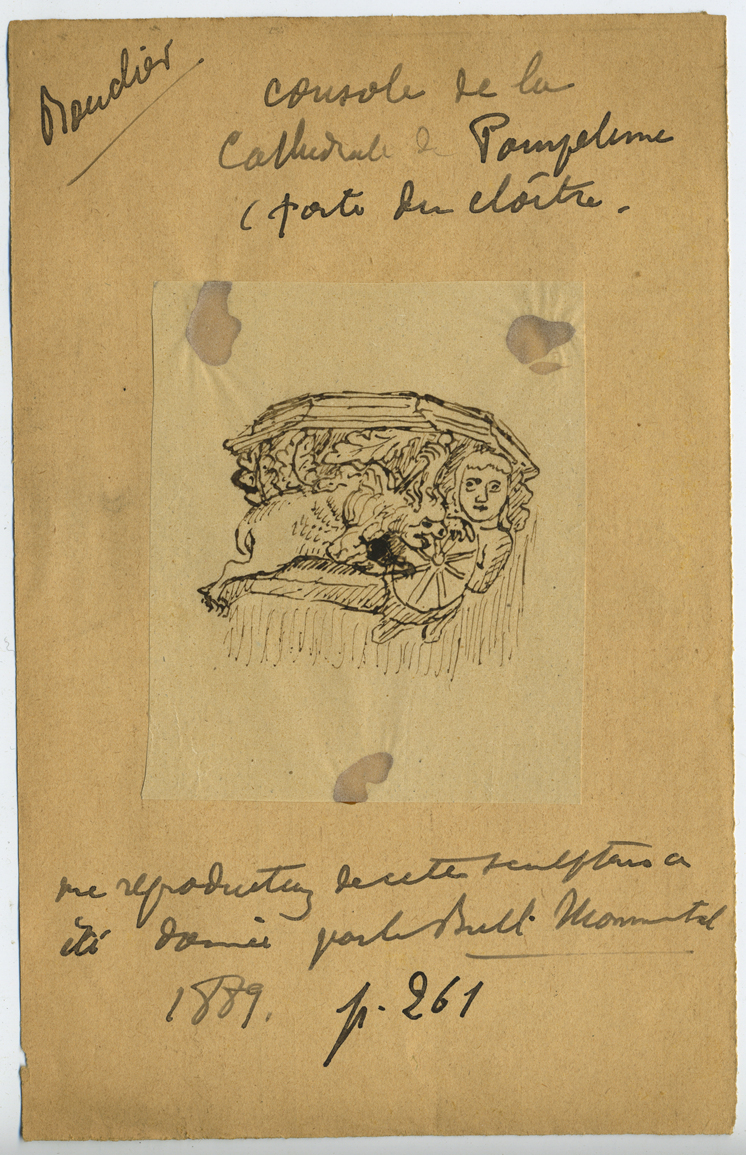 Bouclier
console de la
Cathedrale de Pampelune
( porte du cloître .
une reproduction de cette sculpture a
été donnée par le Bull. Monumental
1889. p. 261